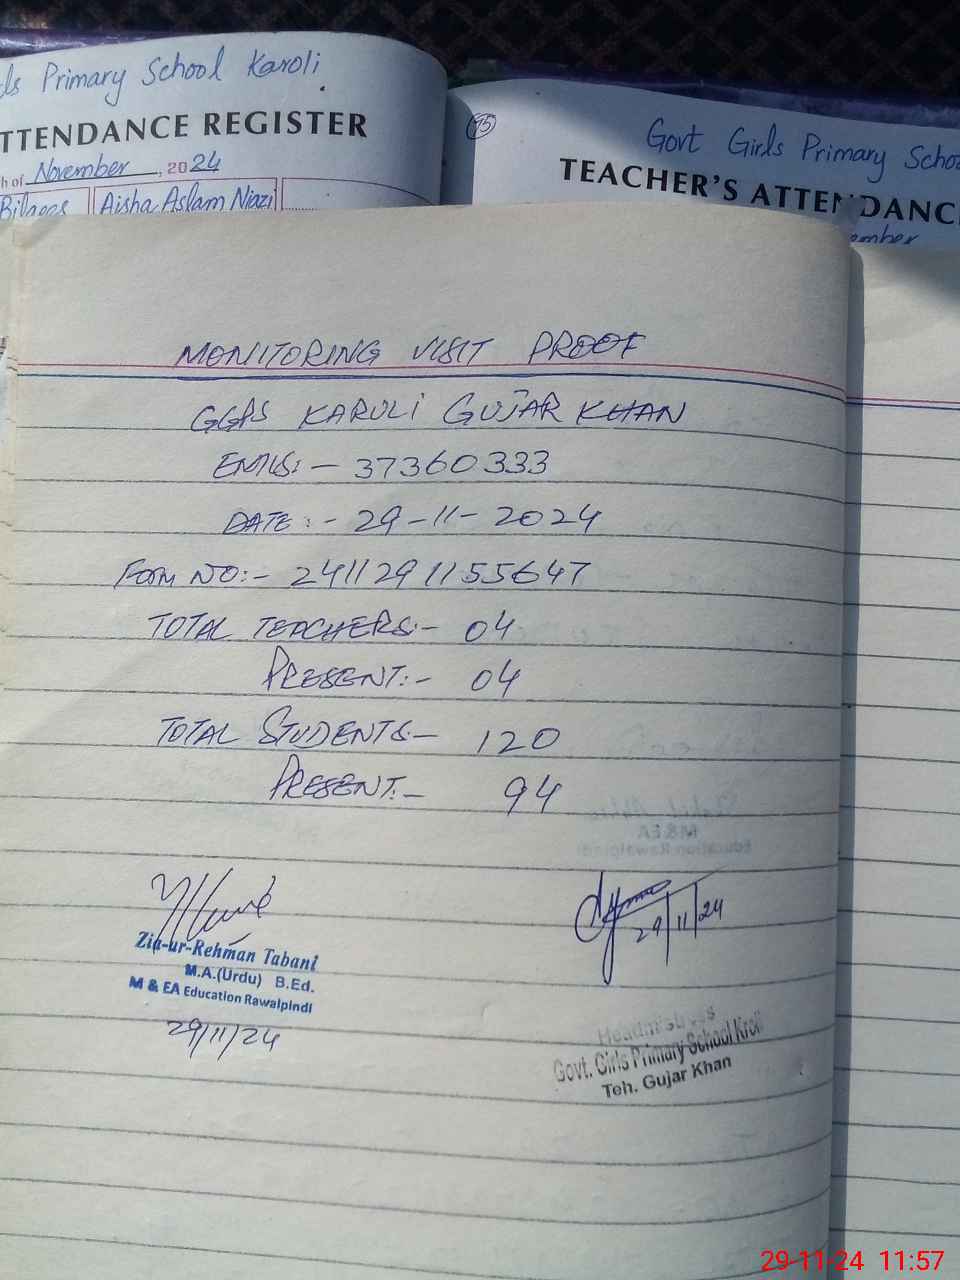 ls Primary School Karoli
TTENDANCE REGISTER
h of November, 2024
Aisha Aslam Niazi
95
Govt Girls Primary Schoo
TEACHER'S ATTENDANC
ember
MONITORING VISIT PROOF
GGPS KAROLI GUJAR KHAN
EMIS:- 37360333
DATE:- 29-11-2024
FORM NO:- 241129115 5647
TOTAL TEACHERS:- 04
PRESENT:- 04
TOTAL STUDENTS- 120
PRESENT:- 94
M&EA
Education Rawalpindi
Zia-ur-Rehman Tabani
M.A.(Urdu) B.Ed.
M & EA Education Rawalpindi
29/11/24
29/11/24
Headmistress
Govt. Girls Primary School Kroli
Teh. Gujar Khan
29-11-24 11:57